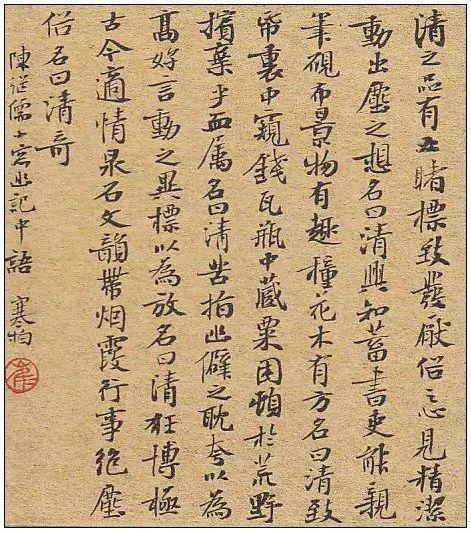 清之品有五睹標致發厭俗之心見精潔
動出塵之想名曰清興知蓄書史能親
筆硯布景物有趣種花木有方名曰清致
帋裹中窺錢瓦瓶中藏粟困頓於荒野
擯棄乎血屬名曰清苦指幽僻之耽夸以為
高好言動之異標以為放名曰清狂博極
古今適情泉石文韻帶烟霞行事絕塵
俗名曰清奇
陳継儒小窗幽記中語 寒柏